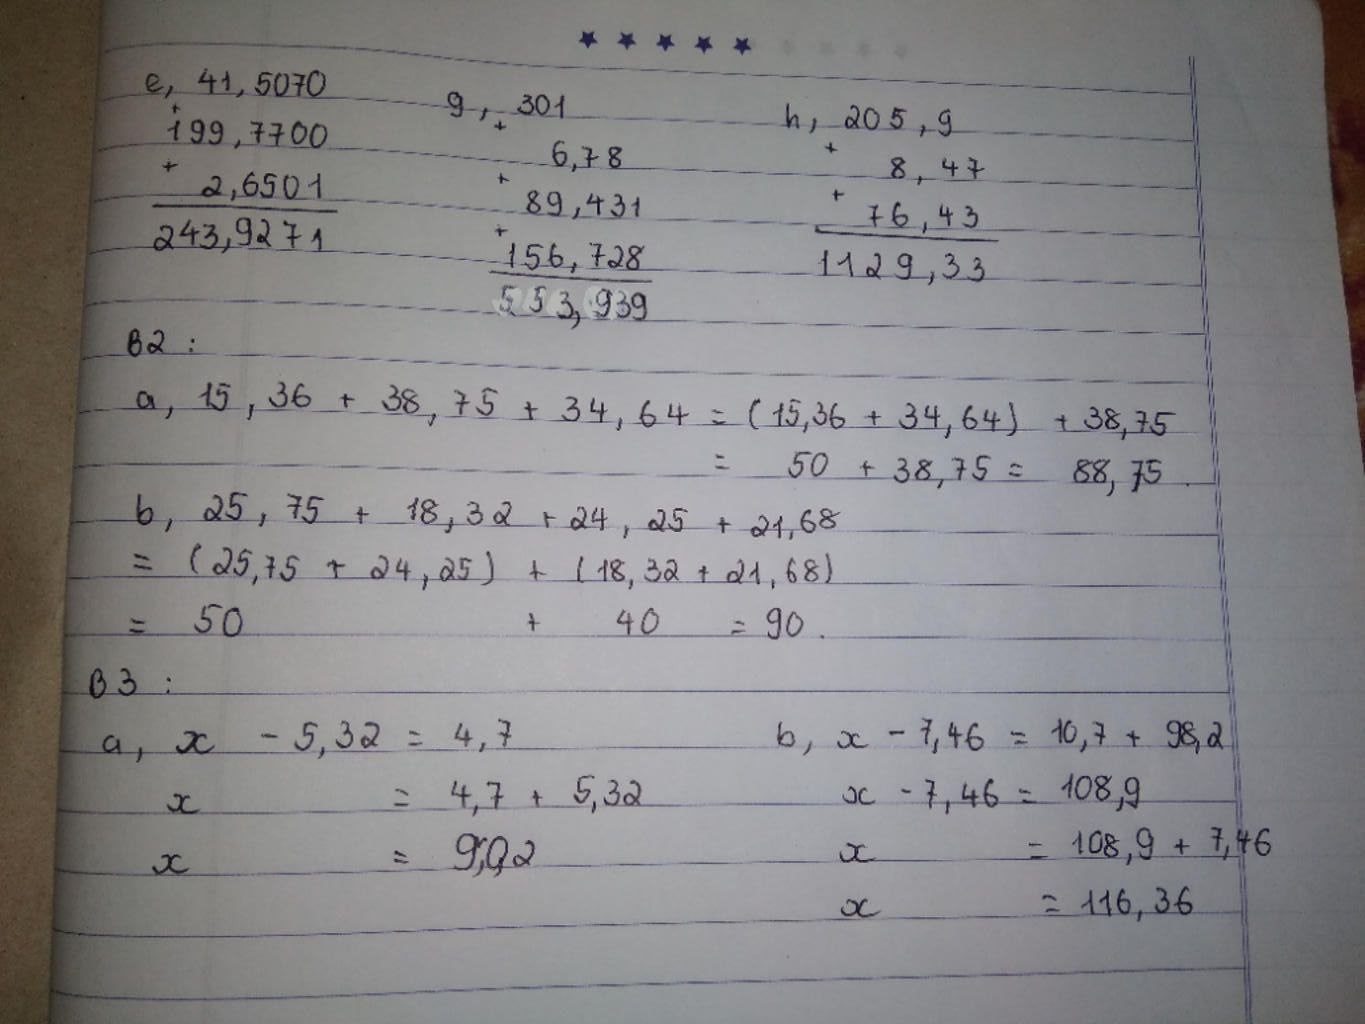 e, 41,5070
+
199,7700
+ 2,6501
243,9271
g, 301
+
6,78
+
89,431
+
156,728
553,939
h, 205,9
+
8,47
+
76,43
1129,33
B2 :
a, 15,36 + 38,75 + 34,64 = (15,36 + 34,64) + 38,75
= 50 + 38,75 = 88,75.
b, 25,75 + 18,32 + 24,25 + 21,68
= (25,75 + 24,25) + (18,32 + 21,68)
= 50 + 40 = 90.
B3 :
a, x - 5,32 = 4,7
x = 4,7 + 5,32
x = 9,02
b, x - 7,46 = 10,7 + 98,2
x - 7,46 = 108,9
x = 108,9 + 7,46
x = 116,36